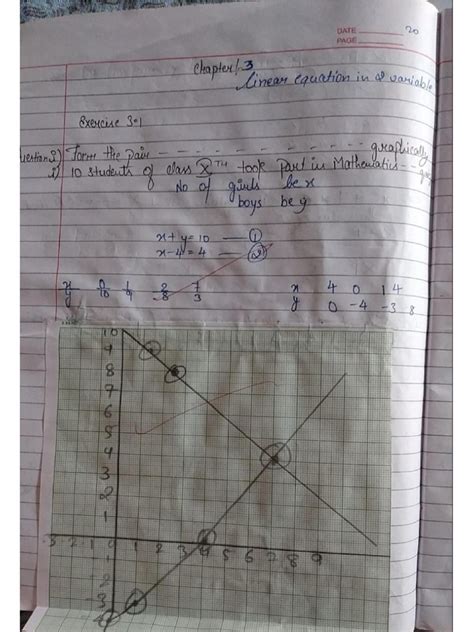 DATE 20
PAGE
Chapter 3
Linear equation in 2 variable
Exercise 3.1
Question 2) Form the pair graphically
i) 10 students of class Xᵀᴴ took part in Mathematics
No of girls be x
boys be y
x + y = 10 — ①
x - 4 = 4 — ②
x 0 1 2 7
y 10 9 8 3
x 4 0 1 4
y 0 -4 -3 8
10
9
8
7
6
5
4
3
2
1
-3 -2 -1 0 1 2 3 4 5 6 7 8 9
-3